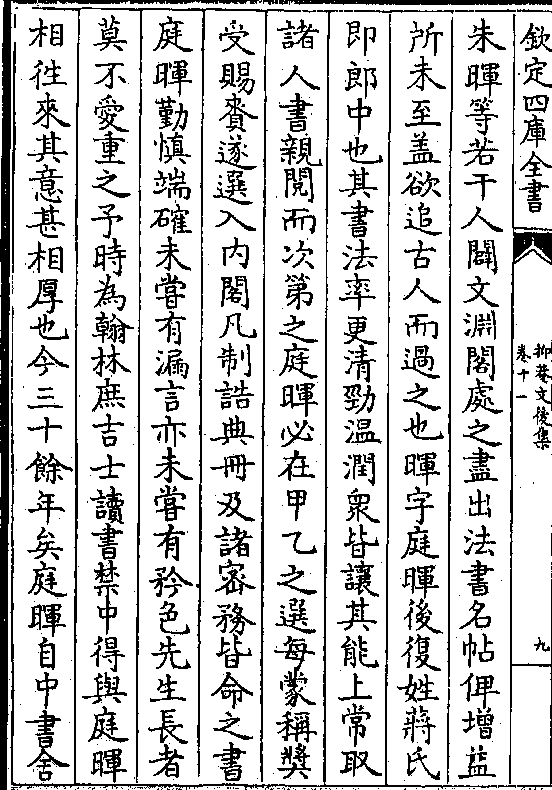 欽定四庫全書
抑菴文後集
卷十一
九
朱暉等若干人闢文淵閣處之盡出法書名帖俾增益
所未至盖欲追古人而過之也暉字庭暉後復姓蔣氏
即郎中也其書法率更清勁温潤衆皆讓其能上常取
諸人書親閲而次第之庭暉必在甲乙之選每蒙稱奬
受賜賚遂選入内閣凡制誥典冊及諸宻務皆命之書
庭暉勤慎端確未嘗有漏言亦未嘗有矜色先生長者
莫不愛重之予時為翰林庶吉士讀書禁中得與庭暉
相徃來其意甚相厚也今三十餘年矣庭暉自中書舍